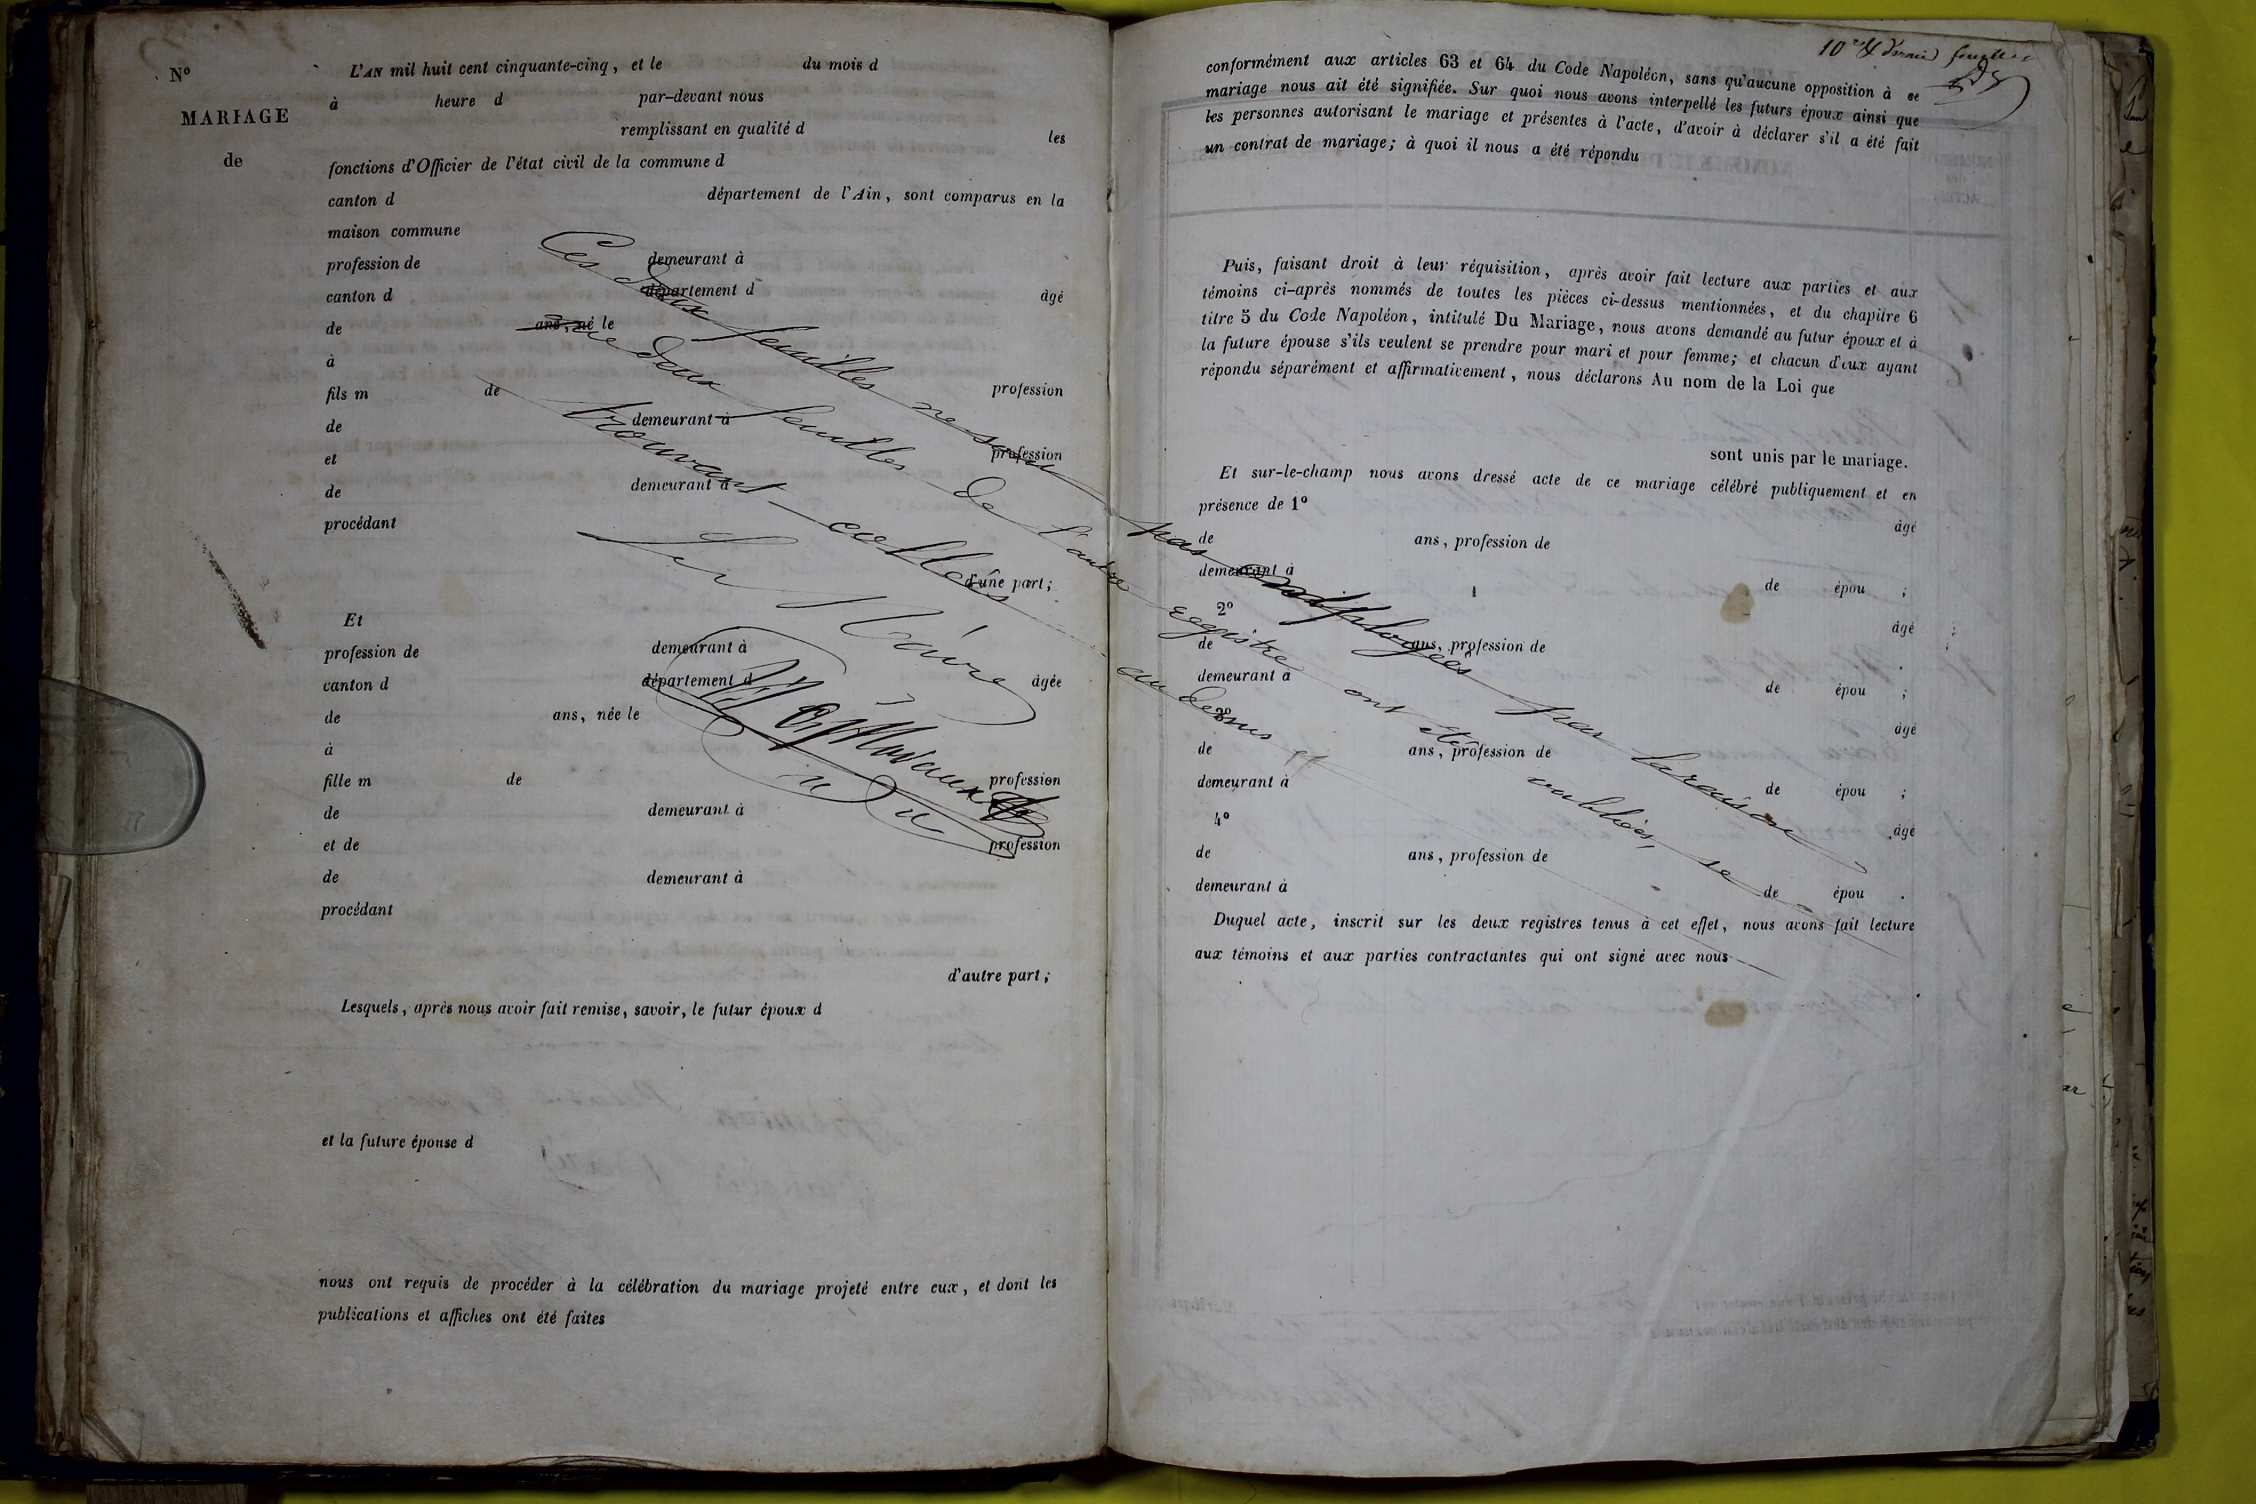 N°
MARIAGE
de
L'AN mil huit cent cinquante-cinq, et le du mois d
à heure d par-devant nous
remplissant en qualité d les
fonctions d'Officier de l'état civil de la commune d
canton d département de l'Ain, sont comparus en la
maison commune
profession de demeurant à
canton d département d âgé
de ans, né le
à
fils m de profession
de demeurant à
et profession
de demeurant à
procédant
d'une part;
Et
profession de demeurant à
canton d département d âgée
de ans, née le
à
fille m de profession
de demeurant à
et de profession
de demeurant à
procédant
d'autre part;
Lesquels, après nous avoir fait remise, savoir, le futur époux d
et la future épouse d
nous ont requis de procéder à la célébration du mariage projeté entre eux, et dont les
publications et affiches ont été faites
Ces deux feuilles ne sont pas employées par la raison
que deux feuilles de l'autre registre ont été oubliées, se
trouvant collées au dessus
Le Maire
10 et dernier feuillet
conformément aux articles 63 et 64 du Code Napoléon, sans qu'aucune opposition à ce
mariage nous ait été signifiée. Sur quoi nous avons interpellé les futurs époux ainsi que
les personnes autorisant le mariage et présentes à l'acte, d'avoir à déclarer s'il a été fait
un contrat de mariage; à quoi il nous a été répondu
Puis, faisant droit à leur réquisition, après avoir fait lecture aux parties et aux
témoins ci-après nommés de toutes les pièces ci-dessus mentionnées, et du chapitre 6
titre 5 du Code Napoléon, intitulé Du Mariage, nous avons demandé au futur époux et à
la future épouse s'ils veulent se prendre pour mari et pour femme; et chacun d'eux ayant
répondu séparément et affirmativement, nous déclarons Au nom de la Loi que
sont unis par le mariage.
Et sur-le-champ nous avons dressé acte de ce mariage célébré publiquement et en
présence de 1° âgé
de ans, profession de
demeurant à de épou ;
2° âgé
de ans, profession de
demeurant à de épou ;
3° âgé
de ans, profession de
demeurant à de épou ;
4° âgé
de ans, profession de
demeurant à de épou .
Duquel acte, inscrit sur les deux registres tenus à cet effet, nous avons fait lecture
aux témoins et aux parties contractantes qui ont signé avec nous